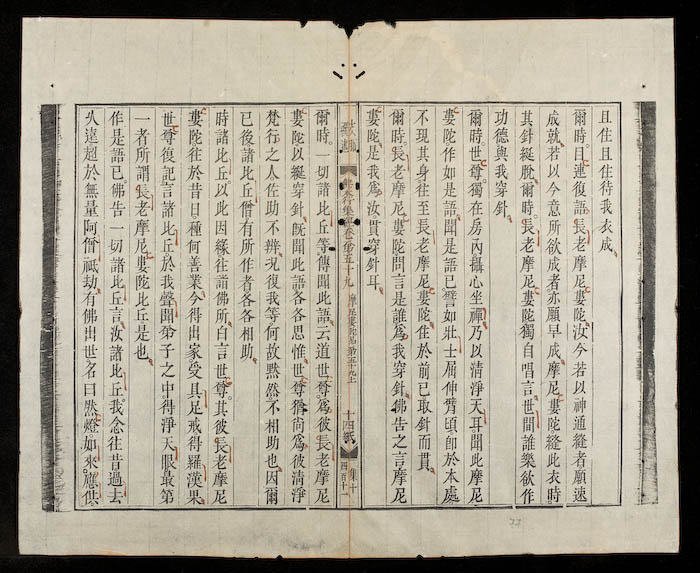 且住且住待我衣成
爾時目連復語長老摩尼婁陀汝今若以神通縫者願速
成就若以今意所欲成者亦願早成摩尼婁陀縫此衣時
其針綖脫爾時長老摩尼婁陀獨自唱言世間誰樂欲作
功德與我穿針
爾時世尊獨在房內攝心坐禪乃以清淨天耳聞此摩尼
婁陀作如是語聞是語已譬如壯士屈伸臂頃即於本處
不現其身往至長老摩尼婁陀住於前已取針而貫
爾時長老摩尼婁陀問言是誰為我穿針佛告之言摩尼
婁陀是我為汝貫穿針耳
卷第五十九
摩尼婁陀品第五十九上
十四紙
集十
四百十一
爾時一切諸比丘等傳聞此語云道世尊為彼長老摩尼
婁陀以綖穿針既聞此語各各思惟世尊猶尚為彼清淨
梵行之人佐助不辦況復我等何故默然不相助也因爾
已後諸比丘僧有所作者各各相助
時諸比丘以此因緣往詣佛所白言世尊其彼長老摩尼
婁陀往於昔日種何善業今得出家受具足戒得羅漢果
世尊復記言諸比丘於我聲聞弟子之中得淨天眼最第
一者所謂長老摩尼婁陀比丘是也
作是語已佛告一切諸比丘言汝諸比丘我念往昔過去
久遠超於無量阿僧祇劫有佛出世名曰然燈如來應供
77